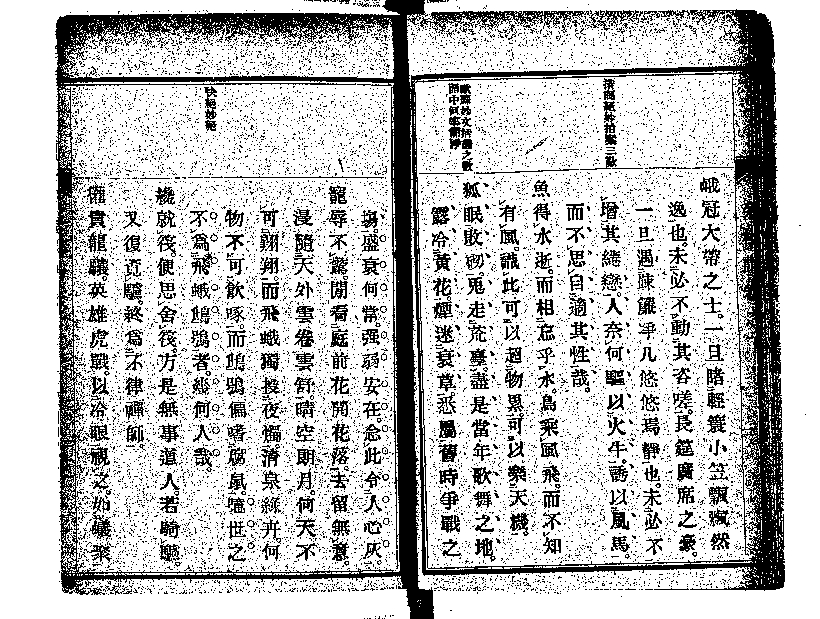 峨冠大帶之士。一旦睹輕簑小笠飄飄然
逸也。未必不動其咨嗟。長筵廣席之豪。
一旦遇疎簾淨几悠悠焉靜也。未必不
增其綣戀。人奈何驅以火牛。誘以風馬。
而不思自適其性哉。
魚得水逝。而相忘乎水。鳥乘風飛。而不知
有風。識此可以超物累。可以樂天機。
狐眠敗砌。兎走荒臺。盡是當年歌舞之地。
露冷黃花。煙迷衰草。悉屬舊時爭戰之
場。盛衰何常。强弱安在。念此令人心灰。
寵辱不驚。閒看庭前花開花落。去留無意。
漫隨天外雲卷雲舒。晴空朗月。何天不
可翺翔。而飛蛾獨投夜燭。清泉綠卉。何
物不可飲啄。而鴟鴞偏嗜腐鼠。噫世之
不爲飛蛾鴟鴞者。幾何人哉。
纔就筏。便思舍筏。方是無事道人。若騎驢。
又復覓驢。終爲不律禪師。
權貴龍驤。英雄虎戰。以冷眼視之。如蟻聚
快絕妙絕